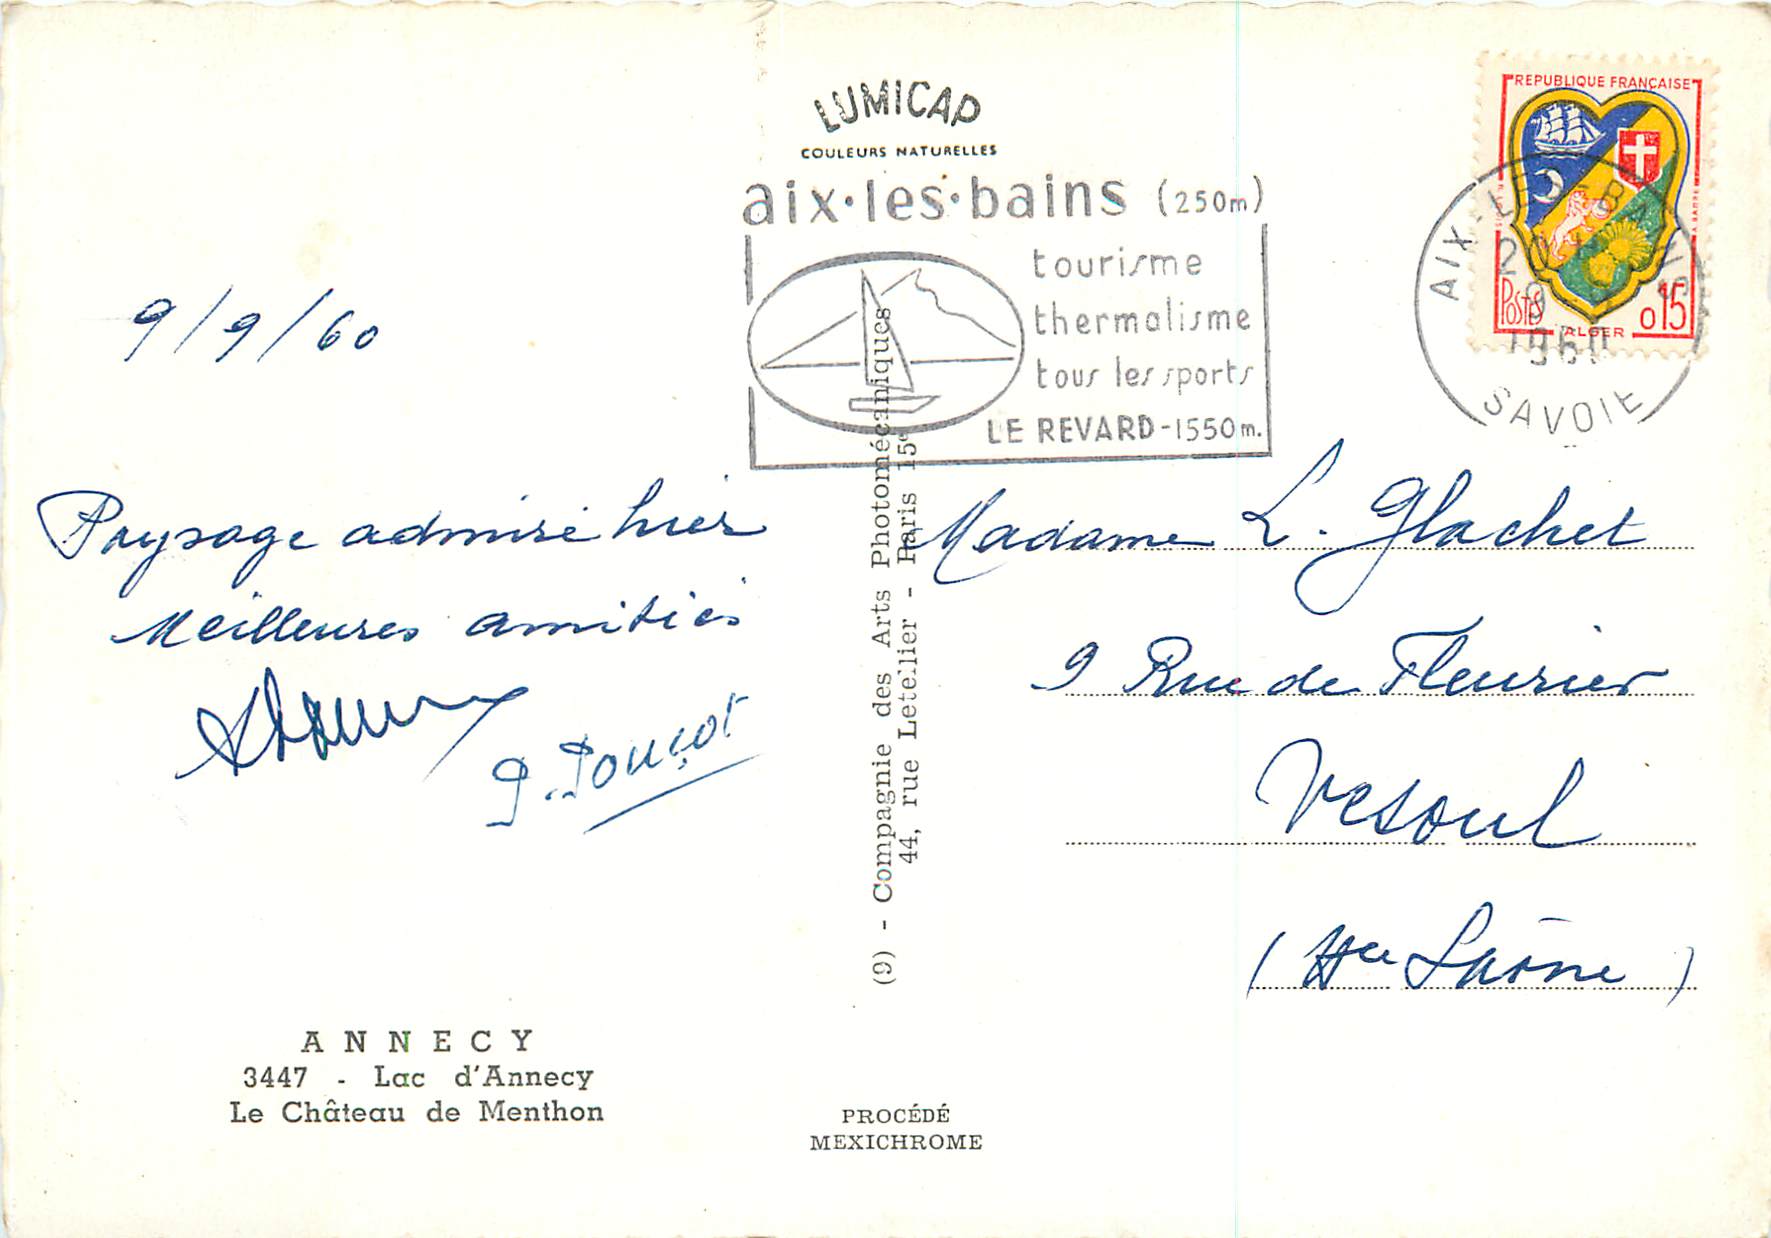 LUMICAP
COULEURS NATURELLES
aix•les•bains (250m)
tourisme
thermalisme
tous les sports
LE REVARD-1550m.
REPUBLIQUE FRANÇAISE
POSTES
ALGER
0,15
AIX-LES-BAINS
1960
SAVOIE
9/9/60
Paysage admiré hier
Meilleures amitiés
P. Pouçot
Madame L. Glachet
9 Rue de Fleurier
Vesoul
(Hte Saône)
(9) - Compagnie des Arts Photomécaniques
44, rue Letellier - Paris 15e
ANNECY
3447 - Lac d'Annecy
Le Château de Menthon
PROCÉDÉ
MEXICHROME